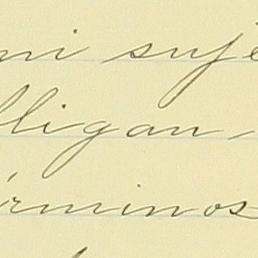 ni suje
lligan
érminos